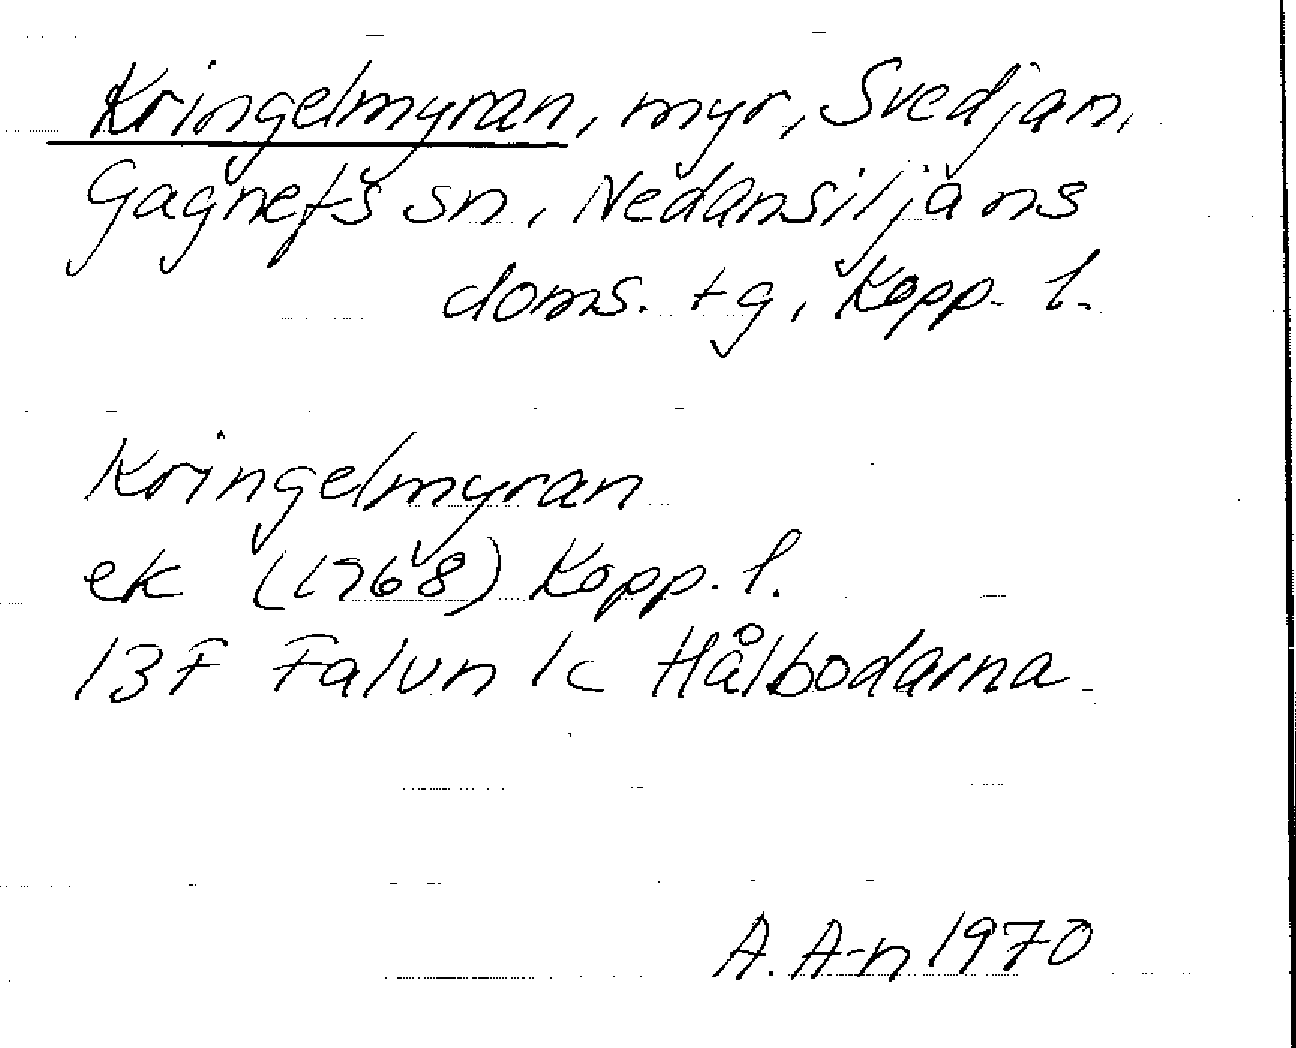 Kringelmyran, myr, Svedjan,
Gagnefs sn, Nedansiljans
doms. tg, Kopp. l.
Kringelmyran
ek (1768) Kopp. l.
13F Falun 1c Hålbodarna
A. A-n 1970